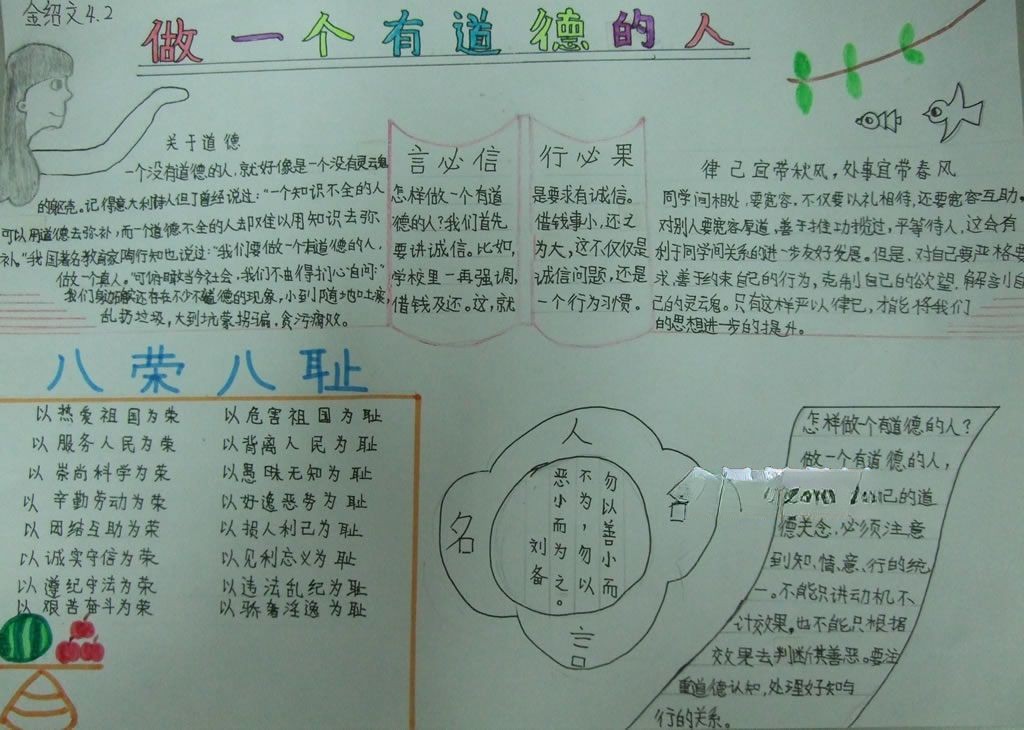 金绍文4.2
做一个有道德的人
关于道德
一个没有道德的人，就好像是一个没有灵魂
的躯壳。记得意大利诗人但丁曾经说过：“一个知识不全的人
可以用道德去弥补，而一个道德不全的人却难以用知识去弥
补。”我国著名教育家陶行知也说过：“我们要做一个有道德的人，
做一个真人。”可俯瞰当今社会，我们不由得扪心自问：
我们身边还存在不少不道德的现象，小到随地吐痰，
乱扔垃圾，大到坑蒙拐骗，贪污腐败。
言必信
怎样做一个有道
德的人？我们首先
要讲诚信。比如，
学校里一再强调，
借钱及还。这，就
行必果
是要求有诚信。
借钱事小，还之
为大，这不仅仅是
诚信问题，还是
一个行为习惯。
律己宜带秋风，处事宜带春风
同学间相处，要宽容，不仅要以礼相待，还要宽容互助。
对别人要宽容厚道，善于推功揽过，平等待人，这会有
利于同学间关系的进一步友好发展。但是，对自己要严格要
求，善于约束自己的行为，克制自己的欲望，解剖自
己的灵云魂。只有这样严以律已，才能将我们
的思想进一步的提升。
八荣八耻
以热爱祖国为荣 以危害祖国为耻
以服务人民为荣 以背离人民为耻
以崇尚科学为荣 以愚昧无知为耻
以辛勤劳动为荣 以好逸恶劳为耻
以团结互助为荣 以损人利己为耻
以诚实守信为荣 以见利忘义为耻
以遵纪守法为荣 以违法乱纪为耻
以艰苦奋斗为荣 以骄奢淫逸为耻
名
人
言
勿以善小而
不为，勿以
恶小而为之。
刘备
怎样做一个有道德的人？
做一个有道德的人，
己的道
德关念，必须注意
到知、情、意、行的统
一。不能只讲动机不
计效果。也不能只根据
效果去判断其善恶。要注
重道德认知，处理好知与
行的关系。